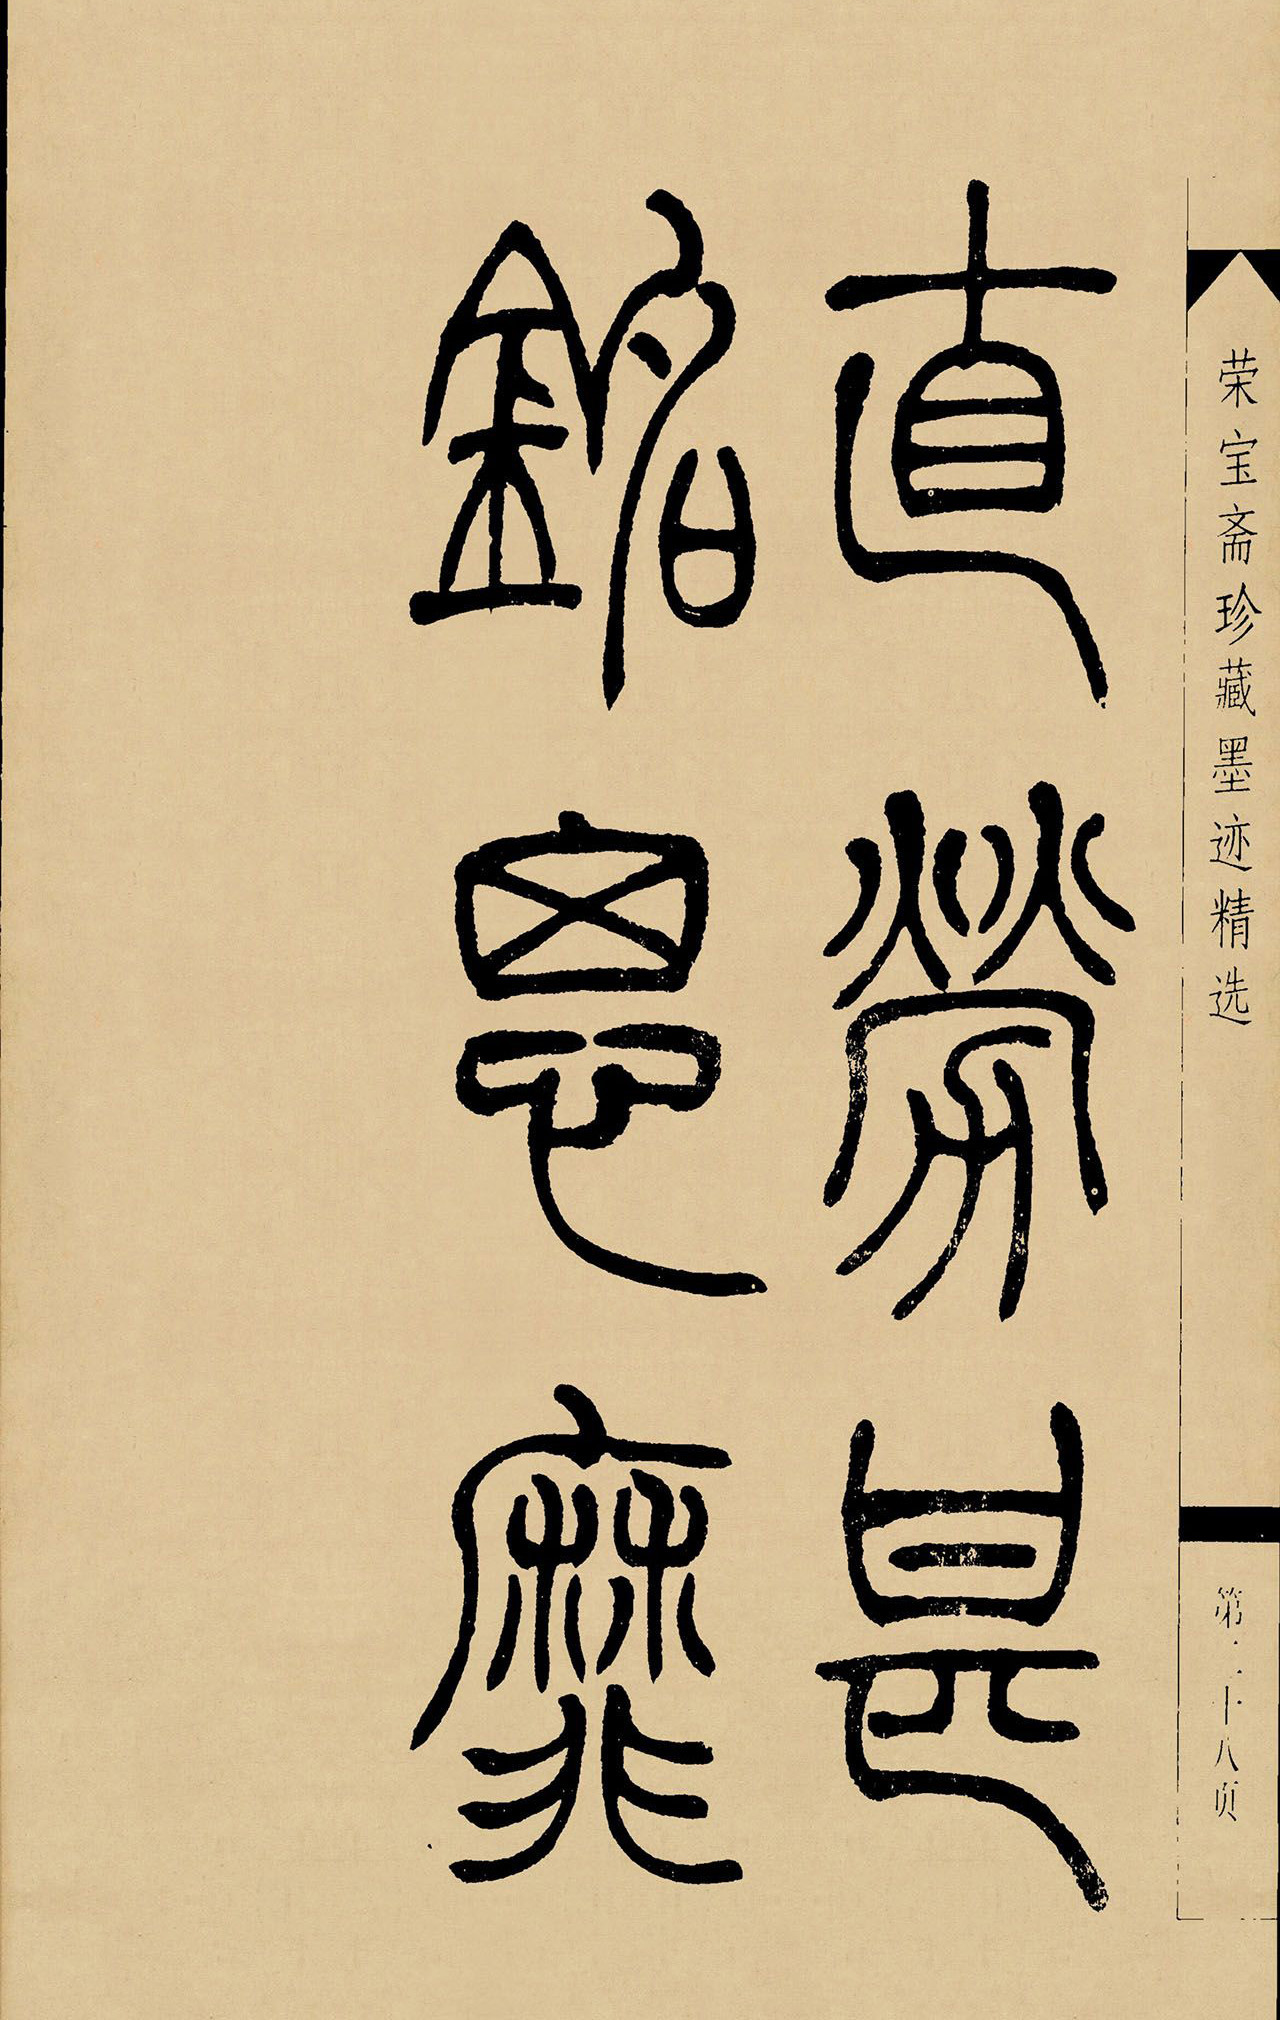 荣宝斋珍藏墨迹精选
直勞是
銘思靡
第十八页